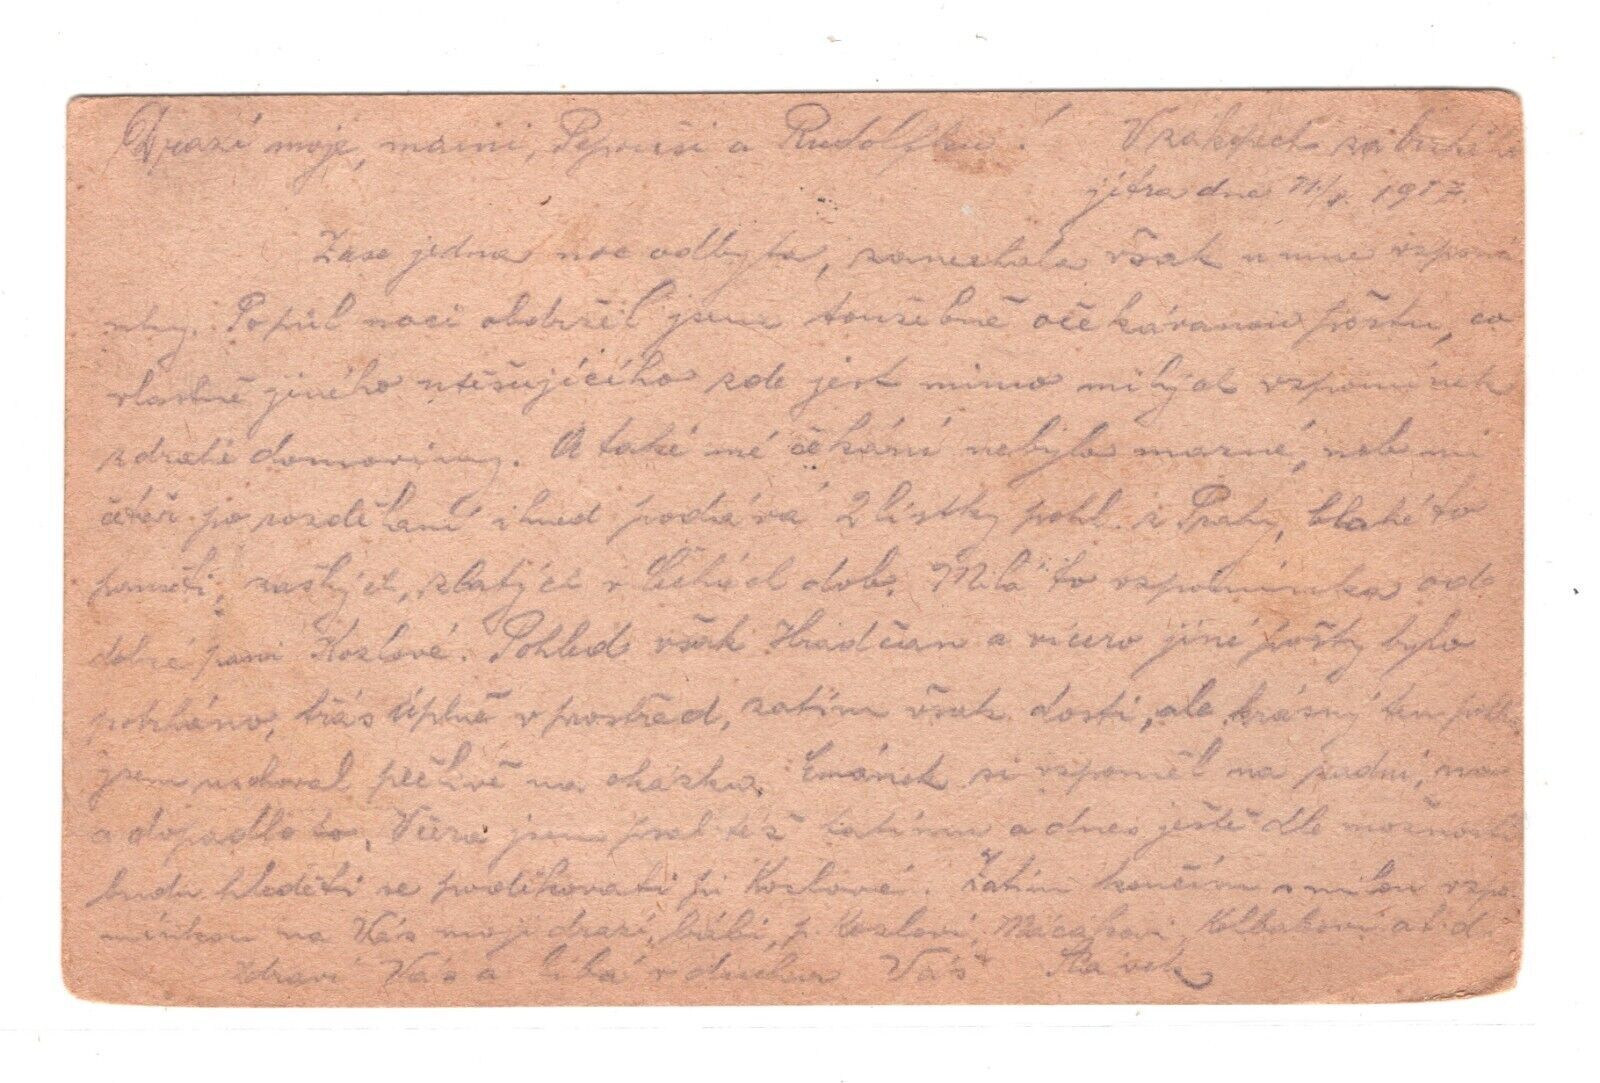 Drazí moje, mami, Pepouši a Rudolfku! V zákopech za
jitra dne 11./8. 1917.
Zase jedna noc odbyta, zanechala však u mne vzpomín
ky. Po půl noci obdržel jsme toužebně očekávanou poštu, co
vlastně jiného utěšujícího zde jest mimo milých vzpomínek
z drahé domoviny. A také mé čekání nebylo marné, neb mi
četař po rozdělaní ihned podává 2 lístky pohl. z Prahy, blahé to
paměti, zašlých, zlatých v Čechách dob. Milá to vzpomínka od
dobré paní Kozlové. Pohled však Hradčan a vícero jiné pošty bylo
potrháno, úplně v prostřed, zatím však dosti, ale krásný ten pohl.
jsem uschoval pečlivě na okázku. Emánek si vzpoměl na
a dopadlo to. Včera jsem psal též tatínu a dnes ještě dle možnosti
budu hleděti se poděkovati pí Kozlové. Zatím končím s milou vzpo-
mínkou na Vás moji drazí, p. Kozlovi, a t. d.
Zdraví Vás a líbá v duchu Váš Slávek